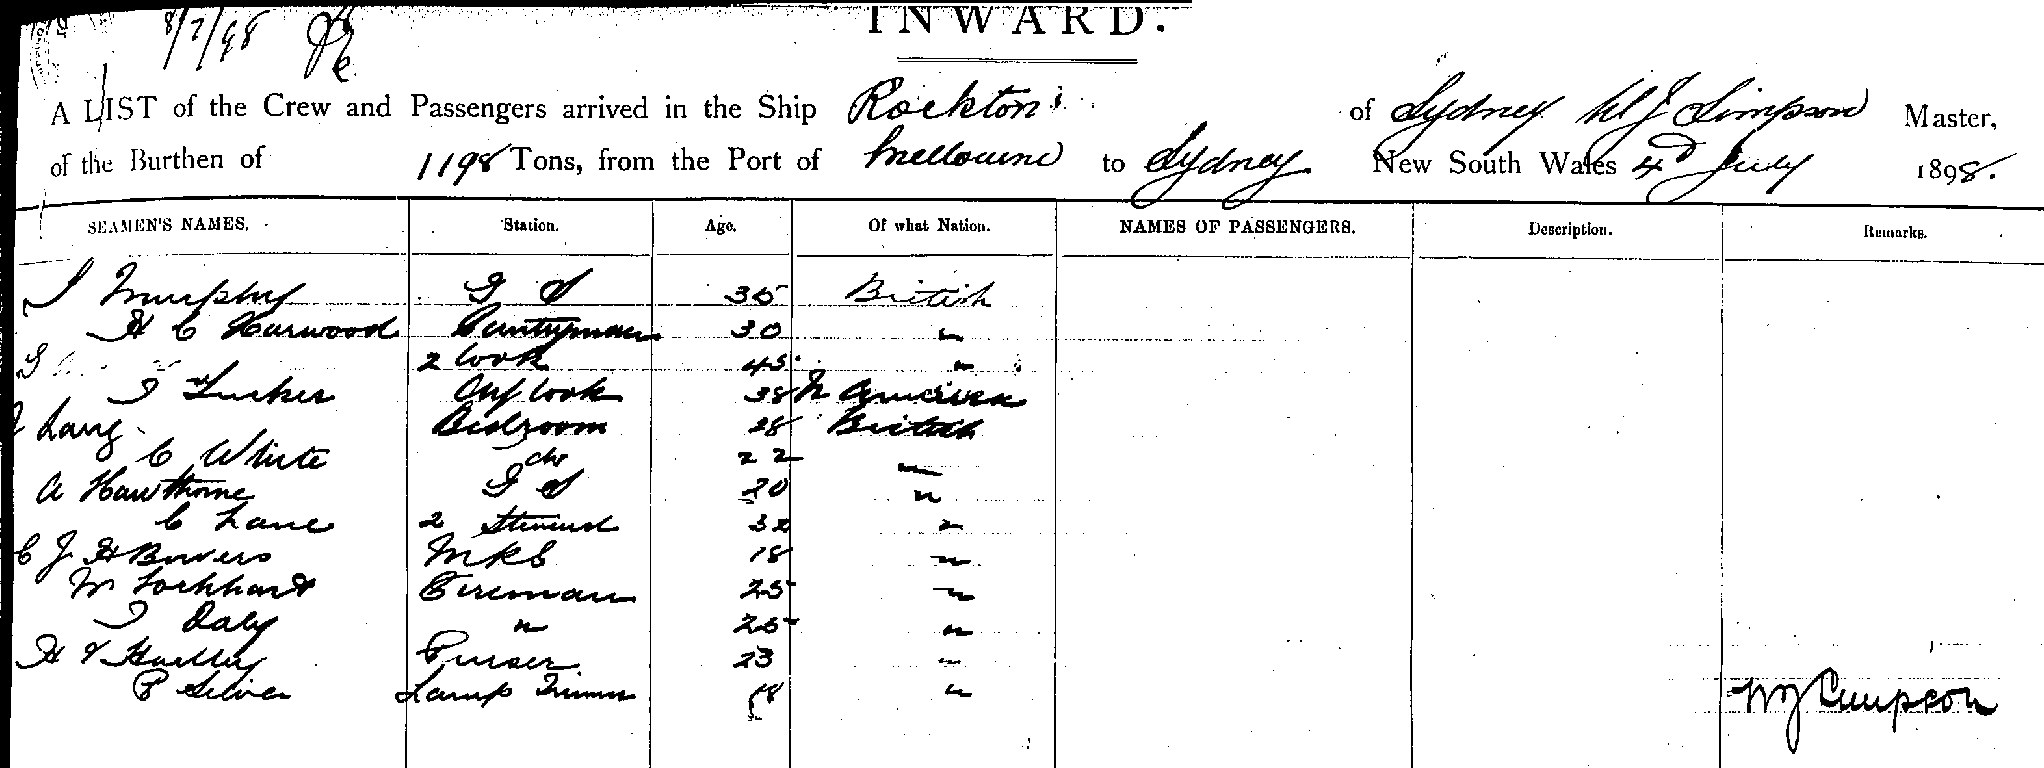 8/7/98
INWARD.
A LIST of the Crew and Passengers arrived in the Ship Rockton of Sydney W J Simpson Master,
of the Burthen of 1198 Tons, from the Port of Melbourne to Sydney New South Wales 4th July 1898.
SEAMEN'S NAMES. Station. Age. Of what Nation. NAMES OF PASSENGERS. Description. Remarks.
J Murphy G S 35 British
H C Harwood Pantryman 30 "
2 Cook 45 "
J Tucker Chf Cook 38 N America
J Lang Bedroom 28 British
C White do 22 "
A Hawthorne G S 20 "
C Lane 2 Steward 32 "
C J H Bowers MRS 18 "
W Lockhart Fireman 25 "
J Daly " 25 "
H Hartley Purser 23 "
P Silva Lamp Trimmer 18 "
W J Simpson